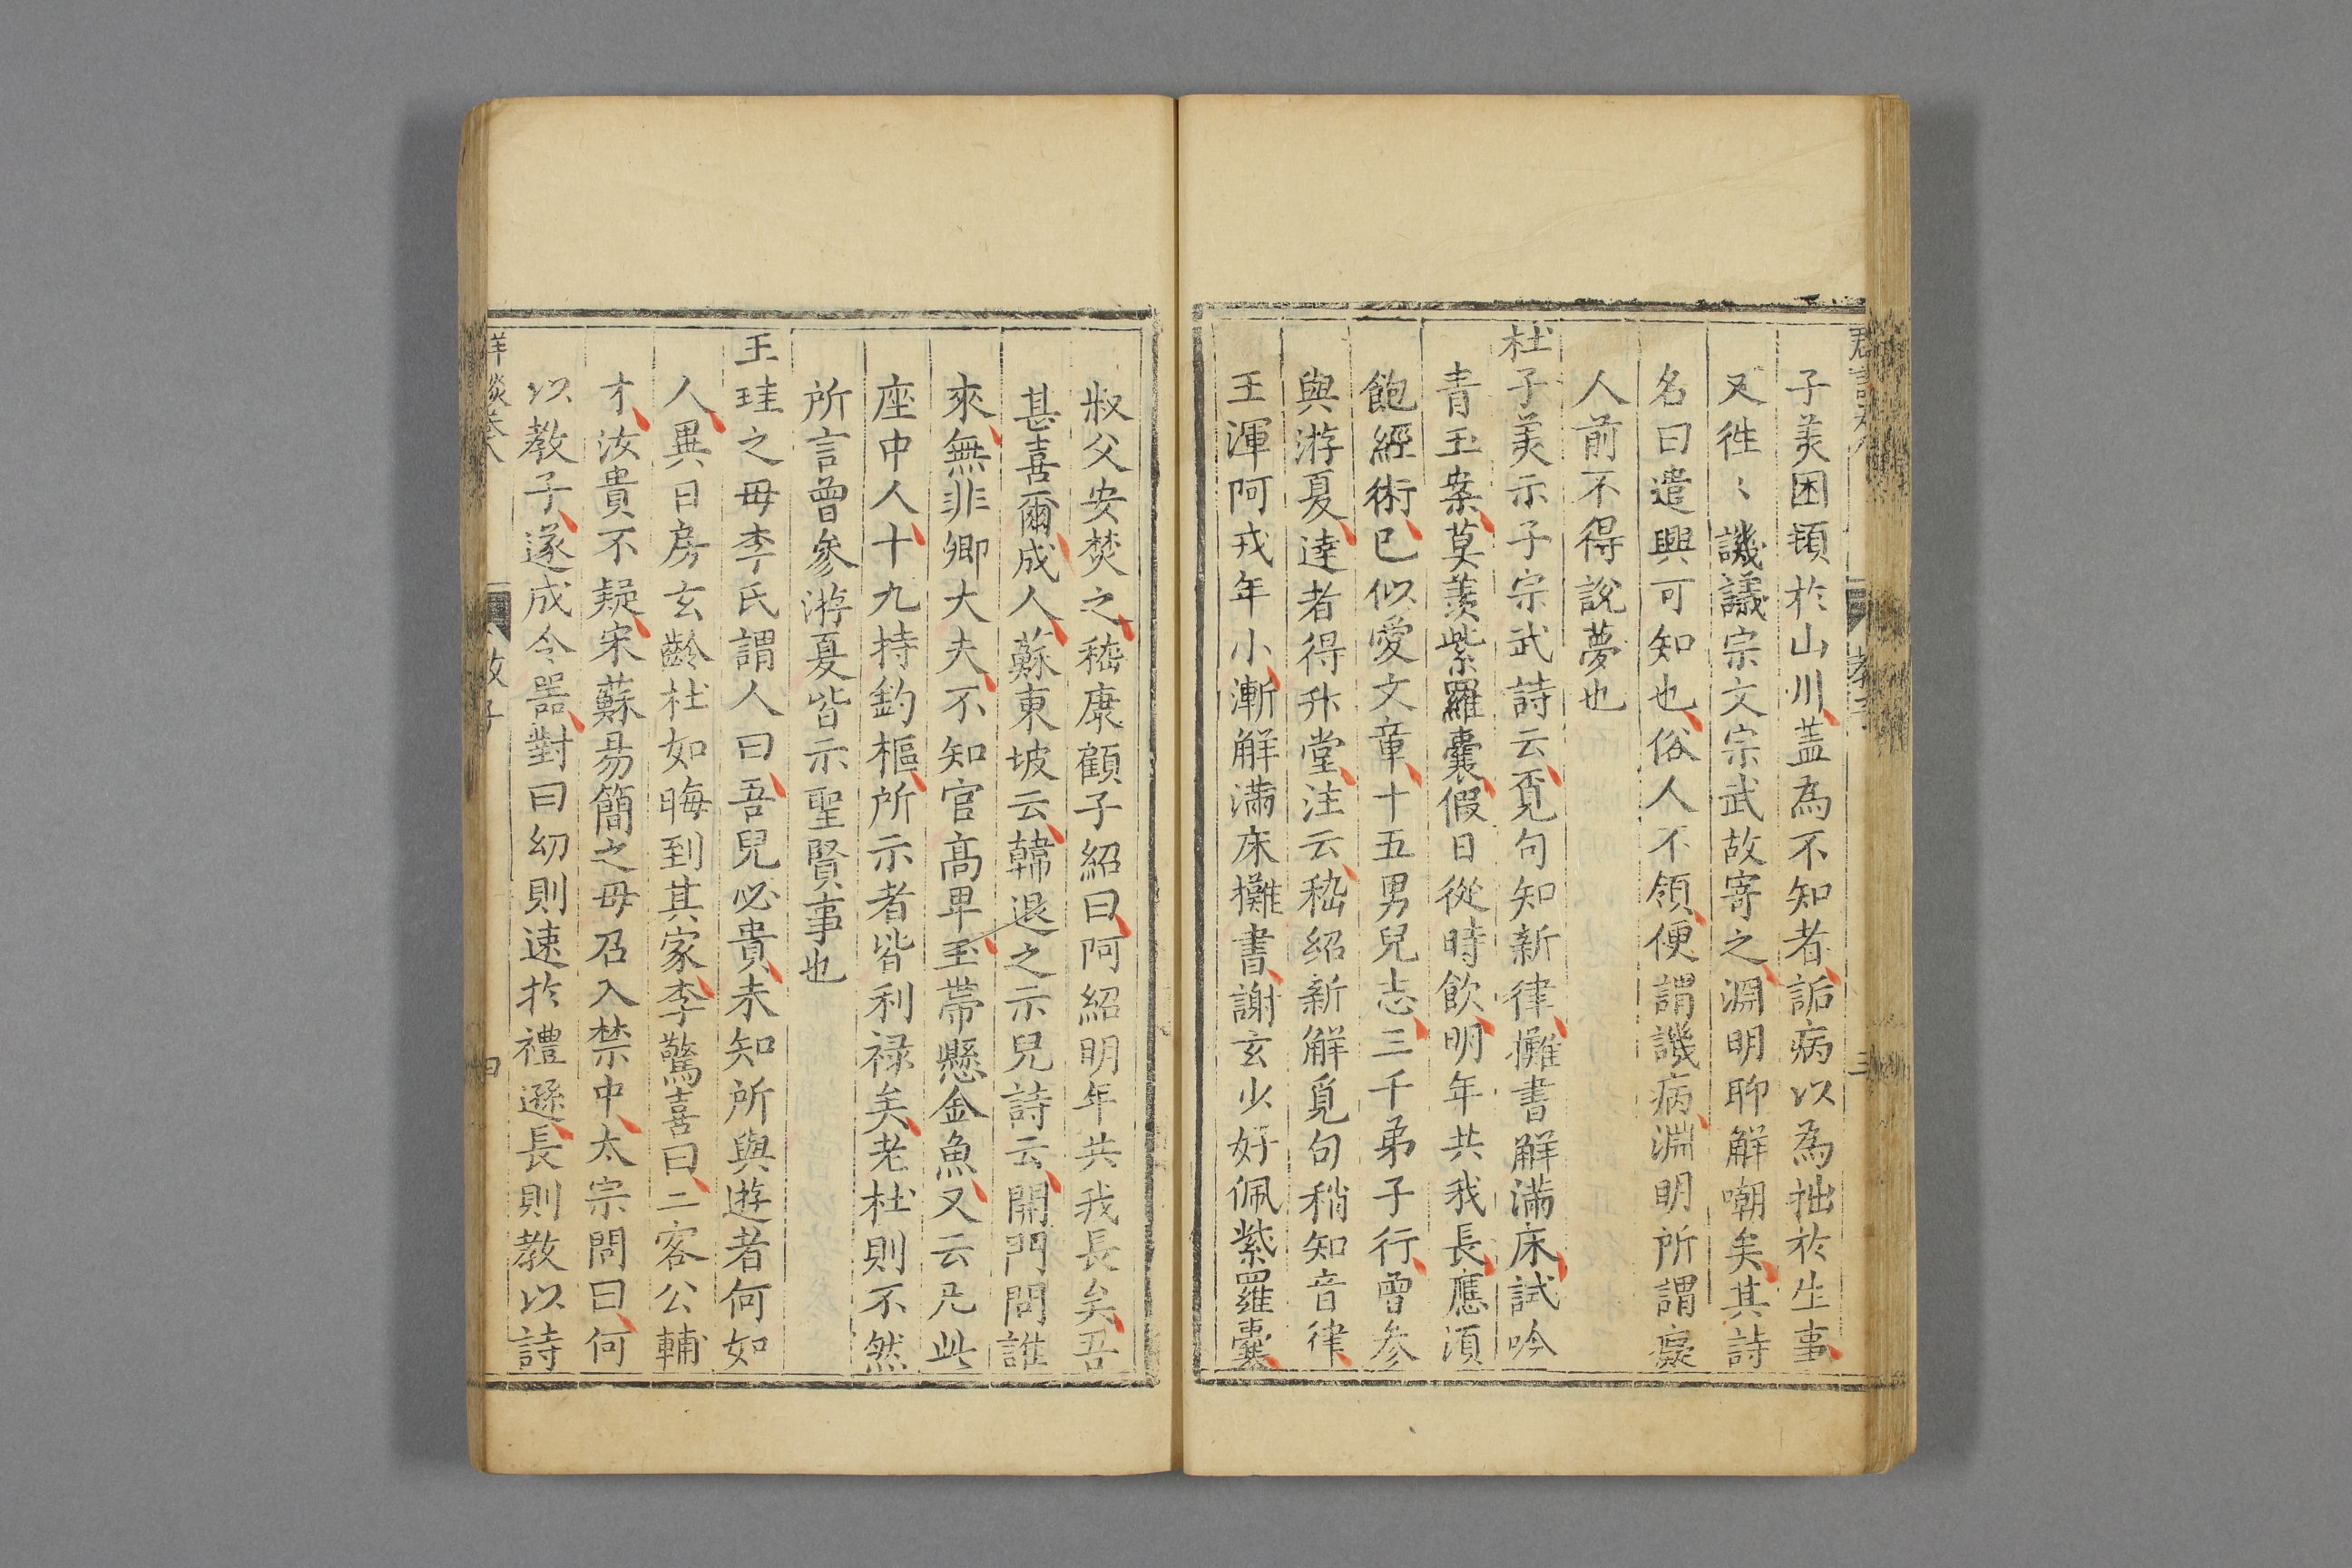 子美困頓於山川蓋為不知者詬病以為拙於生事
又徃〻譏議宗文宗武故寄之淵明聊解嘲矣其詩
名曰遣興可知也俗人不領便謂譏病淵明所謂癡
人前不得說夢也
杜子美示子宗武詩云覔句知新律攤書解滿床試吟
青玉案莫羨紫羅囊假日從時飲明年共我長應湏
飽經術已似愛文章十五男兒志三千弟子行曾参
與游夏達者得升堂注云嵇紹新解覓句稍知音律
王渾阿戎年小漸解滿床攤書謝玄少好佩紫羅囊
叔父安焚之嵇康顧子紹曰阿紹明年共我長矣吾
甚喜爾成人蘇東坡云韓退之示兒詩云開門問誰
來無非卿大夫不知官高卑玉帶懸金魚又云凡此
座中人十九持鈞樞所示者皆利禄矣老杜則不然
所言曾參游夏皆示聖賢事也
王珪之母李氏謂人曰吾兒必貴未知所與遊者何如
人異日房玄齡杜如晦到其家李驚喜曰二客公輔
才汝貴不疑宋蘇易簡之母召入禁中太宗問曰何
以教子遂成令器對曰幼則速於禮遜長則教以詩